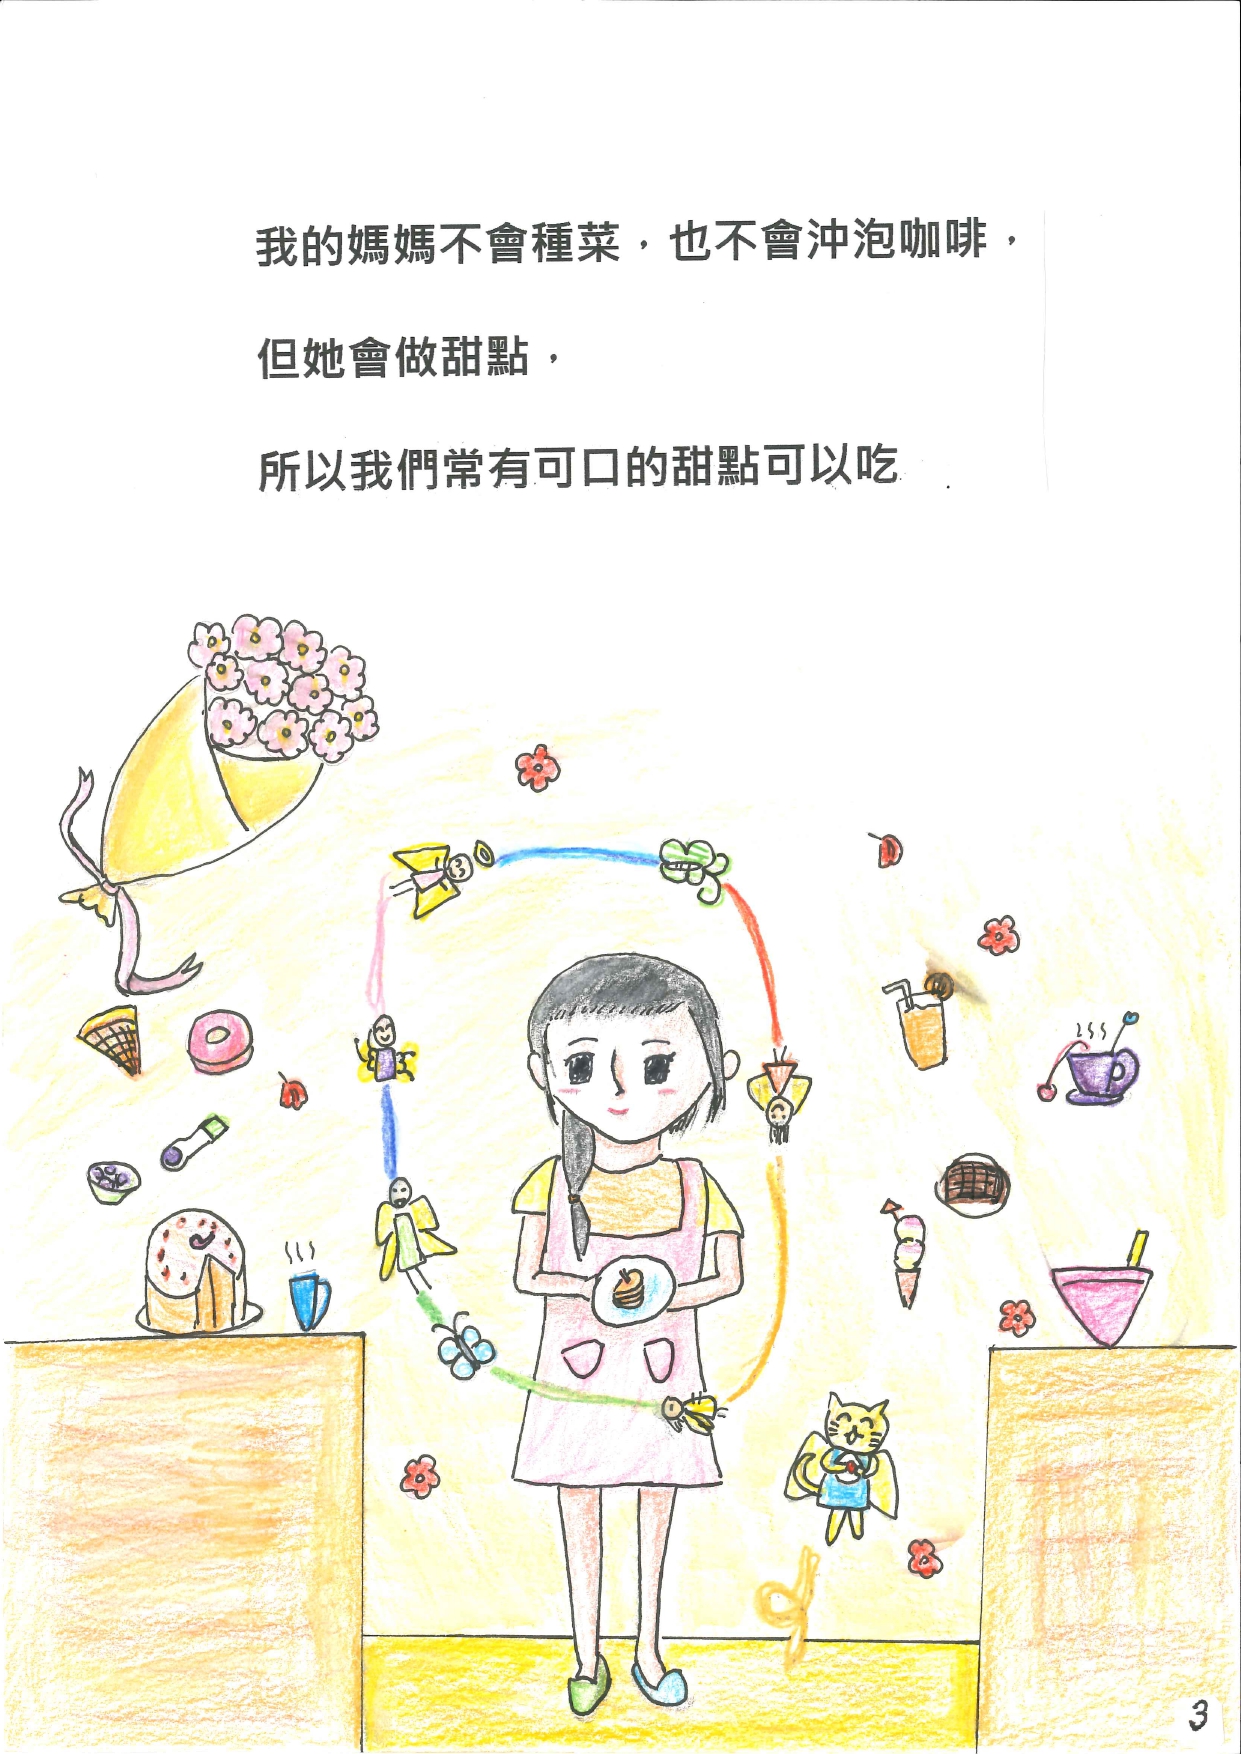 我的媽媽不會種菜，也不會沖泡咖啡，
但她會做甜點，
所以我們常有可口的甜點可以吃
3